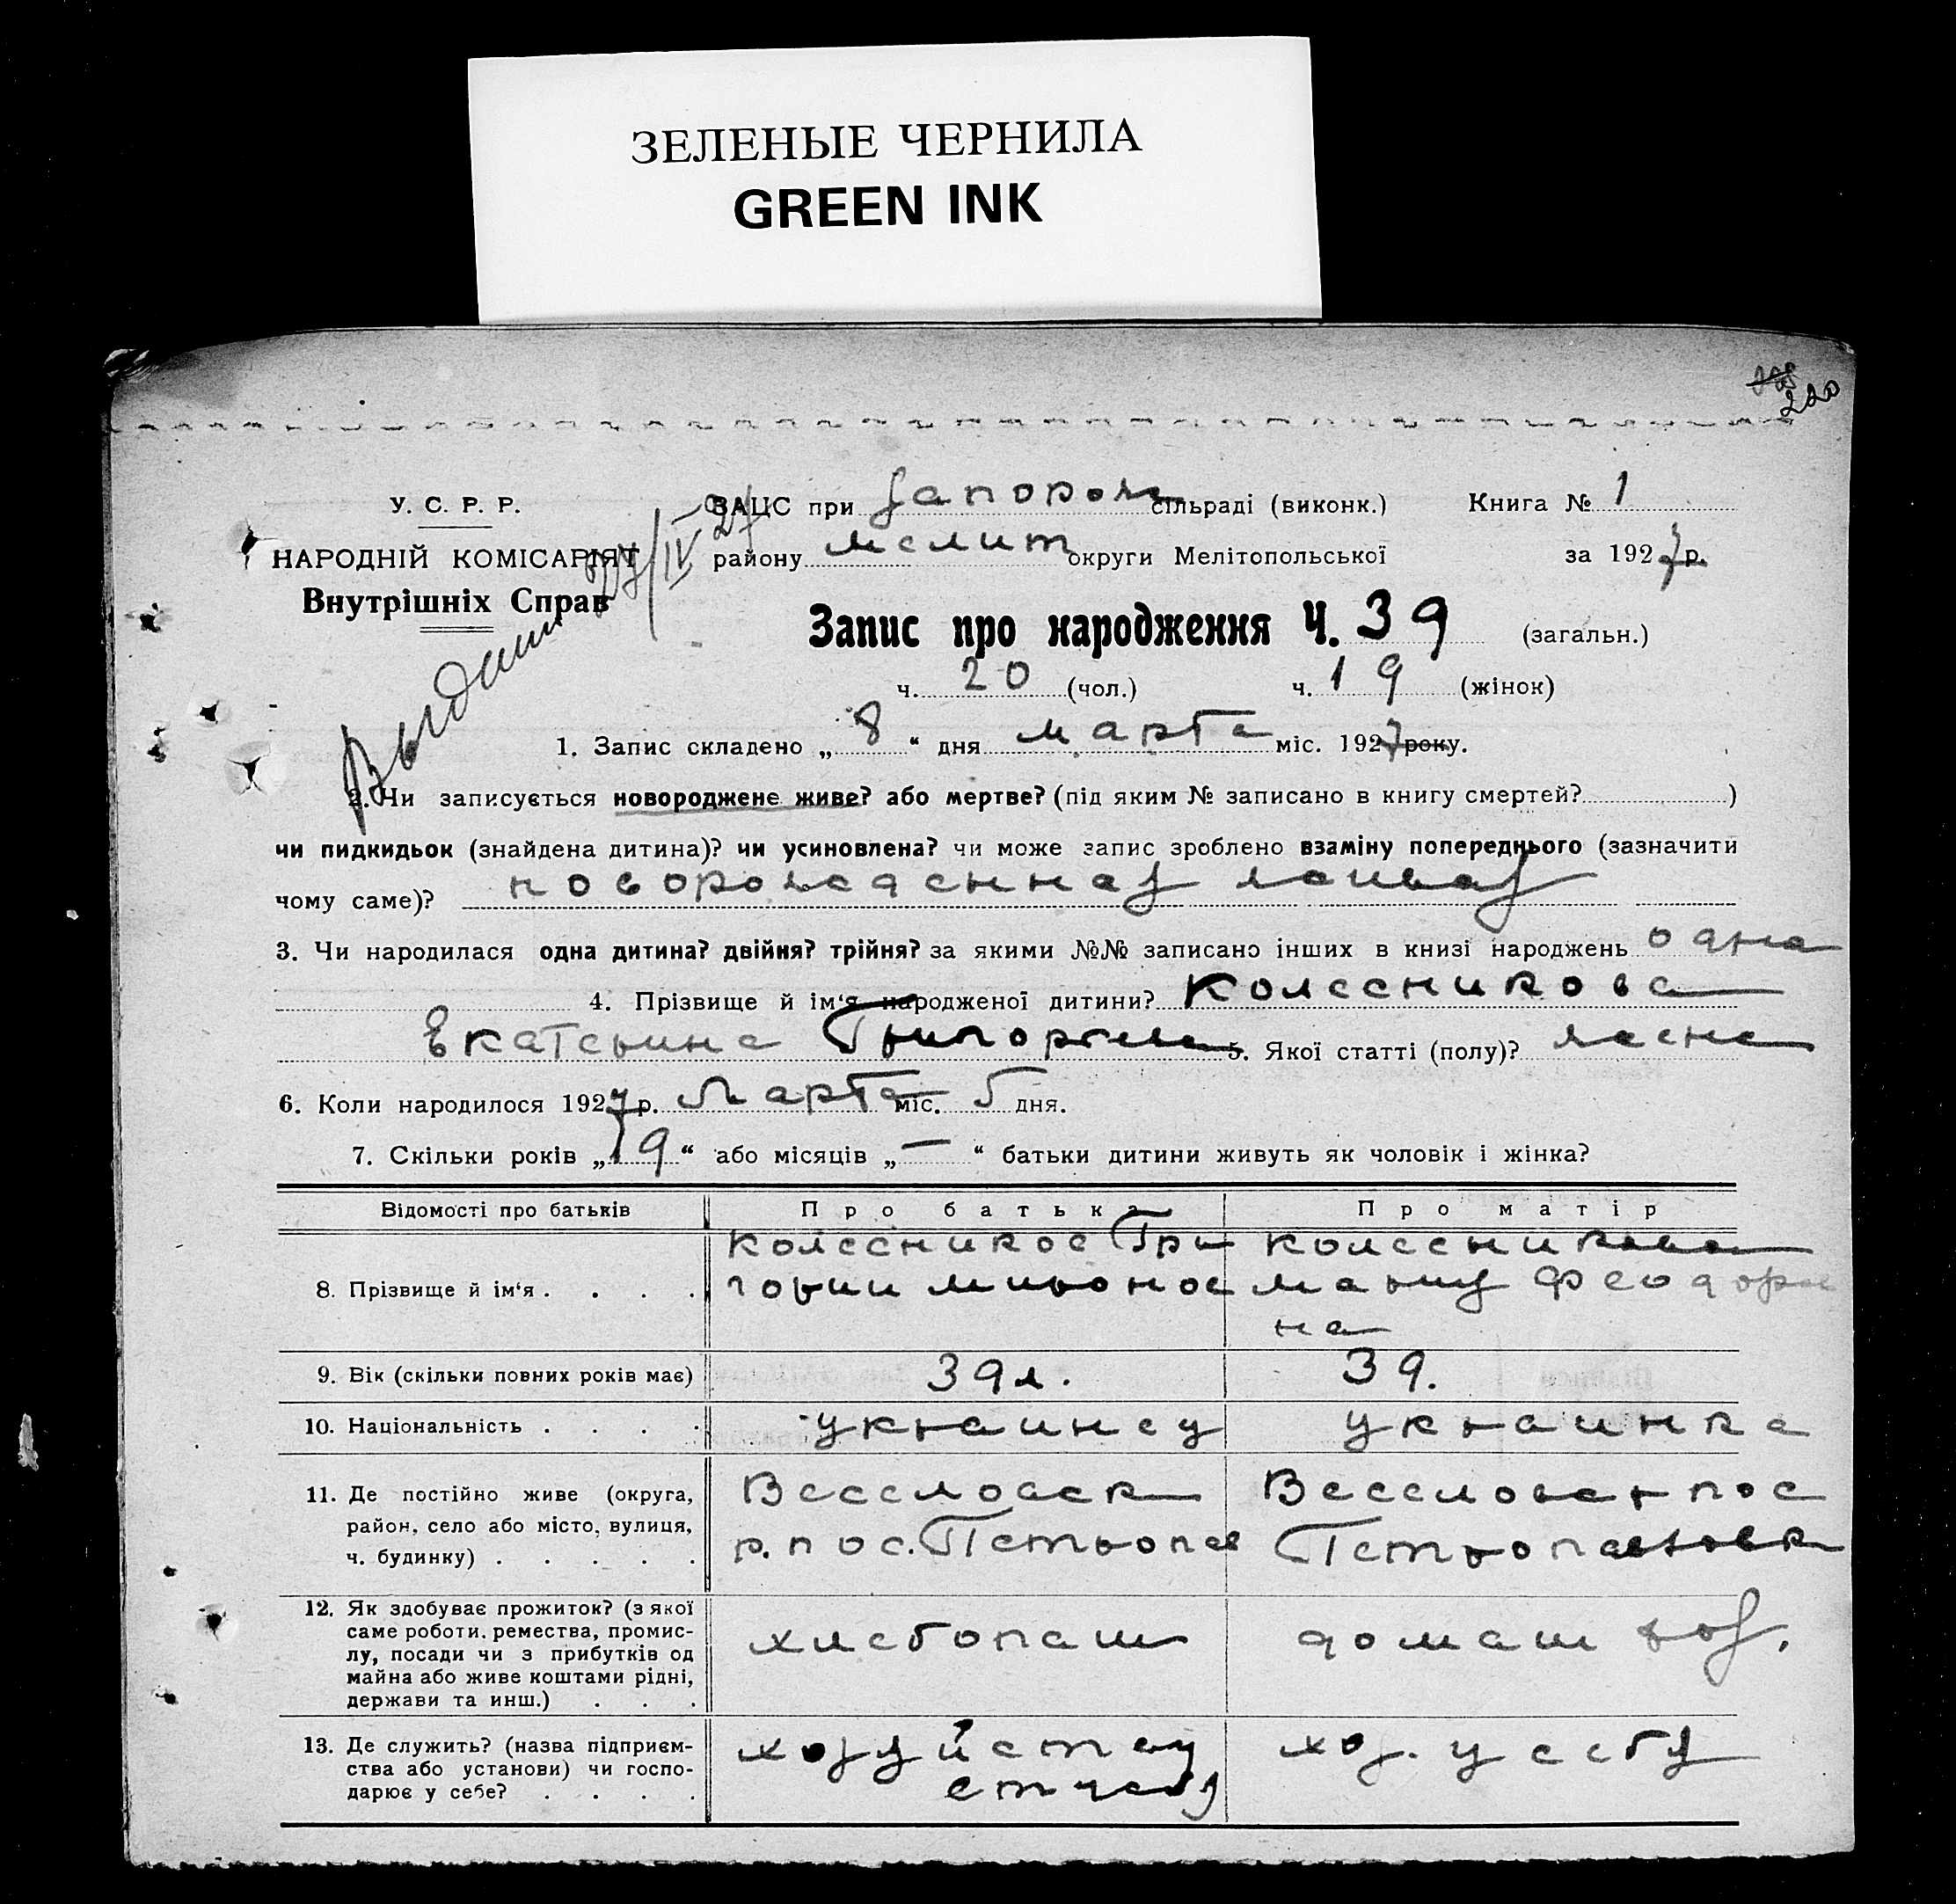 ЗЕЛЕНЫЕ ЧЕРНИЛА
GREEN INK
220
У. С. Р. Р.
НАРОДНІЙ КОМІСАРІЯТ
Внутрішніх Справ
ЗАЦС при Запорож сільраді (виконк.) Книга № 1
району Мелит округи Мелітопольської за 1927 р.
Запис про народження Ч. 39 (загальн.)
ч. 20 (чол.) ч. 19 (жінок)
1. Запис складено „ 8 “ дня марта міс. 1927 року.
2. Чи записується новороджене живе? або мертве? (під яким № записано в книгу смертей? )
чи пидкидьок (знайдена дитина)? чи усиновлена? чи може запис зроблено взаміну попереднього (зазначити
чому саме)? новорожденная живая
3. Чи народилася одна дитина? двійня? трійня? за якими №№ записано інших в книзі народжень одна
4. Прізвище й ім‘я народженої дитини? Колесникова
Екатерина Григорьева 5. Якої статті (полу)? жена
6. Коли народилося 1927 р. Марта міс. 5 дня.
7. Скільки років „ 19 “ або місяців „ — “ батьки дитини живуть як чоловік і жінка?
Відомості про батьків Про батька Про матір
8. Прізвище й ім‘я . . . . Колесников Гри Колесникова
горий миронов мария Феодоров
на
9. Вік (скільки повних років має) 39 л. 39.
10. Національність . . . . украинец украинка
11. Де постійно живе (округа, Веселовск Веселовск пос
район, село або місто, вулиця, р. пос. Петропав Петропавловк
ч. будинку) . . . . .
12. Як здобуває прожиток? (з якої
саме роботи, ремества, промис- хлебопаш домаш хоз.
лу, посади чи з прибутків од
майна або живе коштами рідні,
держави та инш.) . . .
13. Де служить? (назва підприєм- хозяйству хоз. у себя
ства або установи) чи госпо-
дарює у себе? . . . .
Выдан
27/IV-27